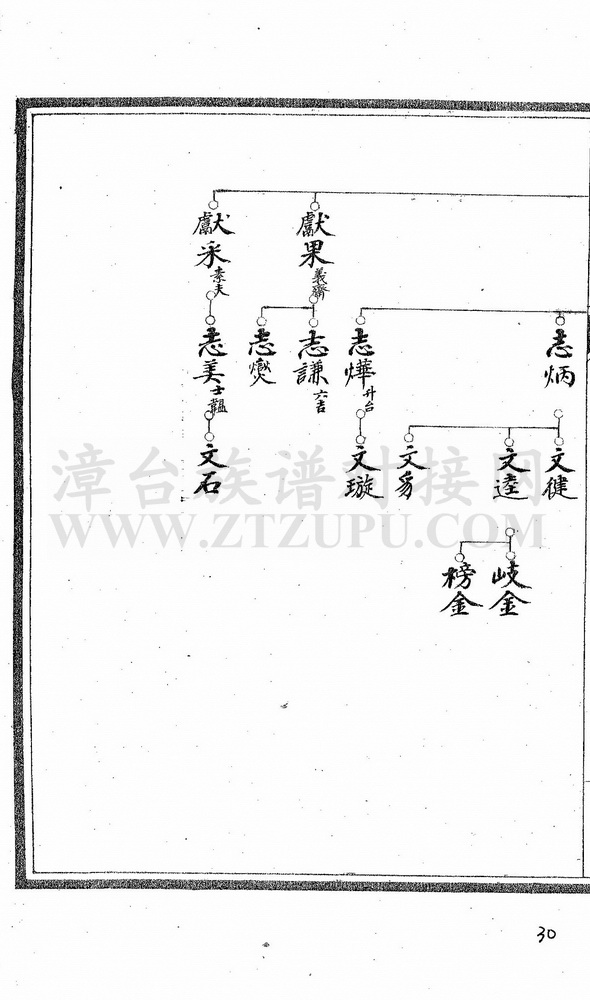 獻果 義齋
獻采 素夫
志炳
志燁 升台
志謙 六吉
志燮
志美 士韞
文健
文逵
文豸
文璇
文石
岐金
榜金
漳台族谱对接网
WWW.ZTZUPU.COM
30